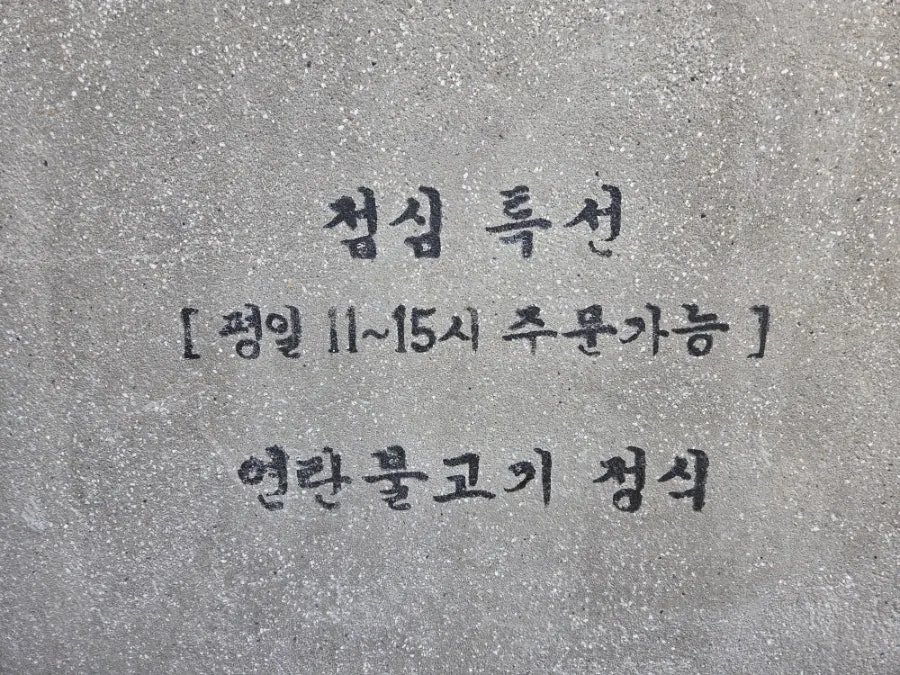 점심 특선
[ 평일 11~15시 주문가능 ]
연란불고기 정식